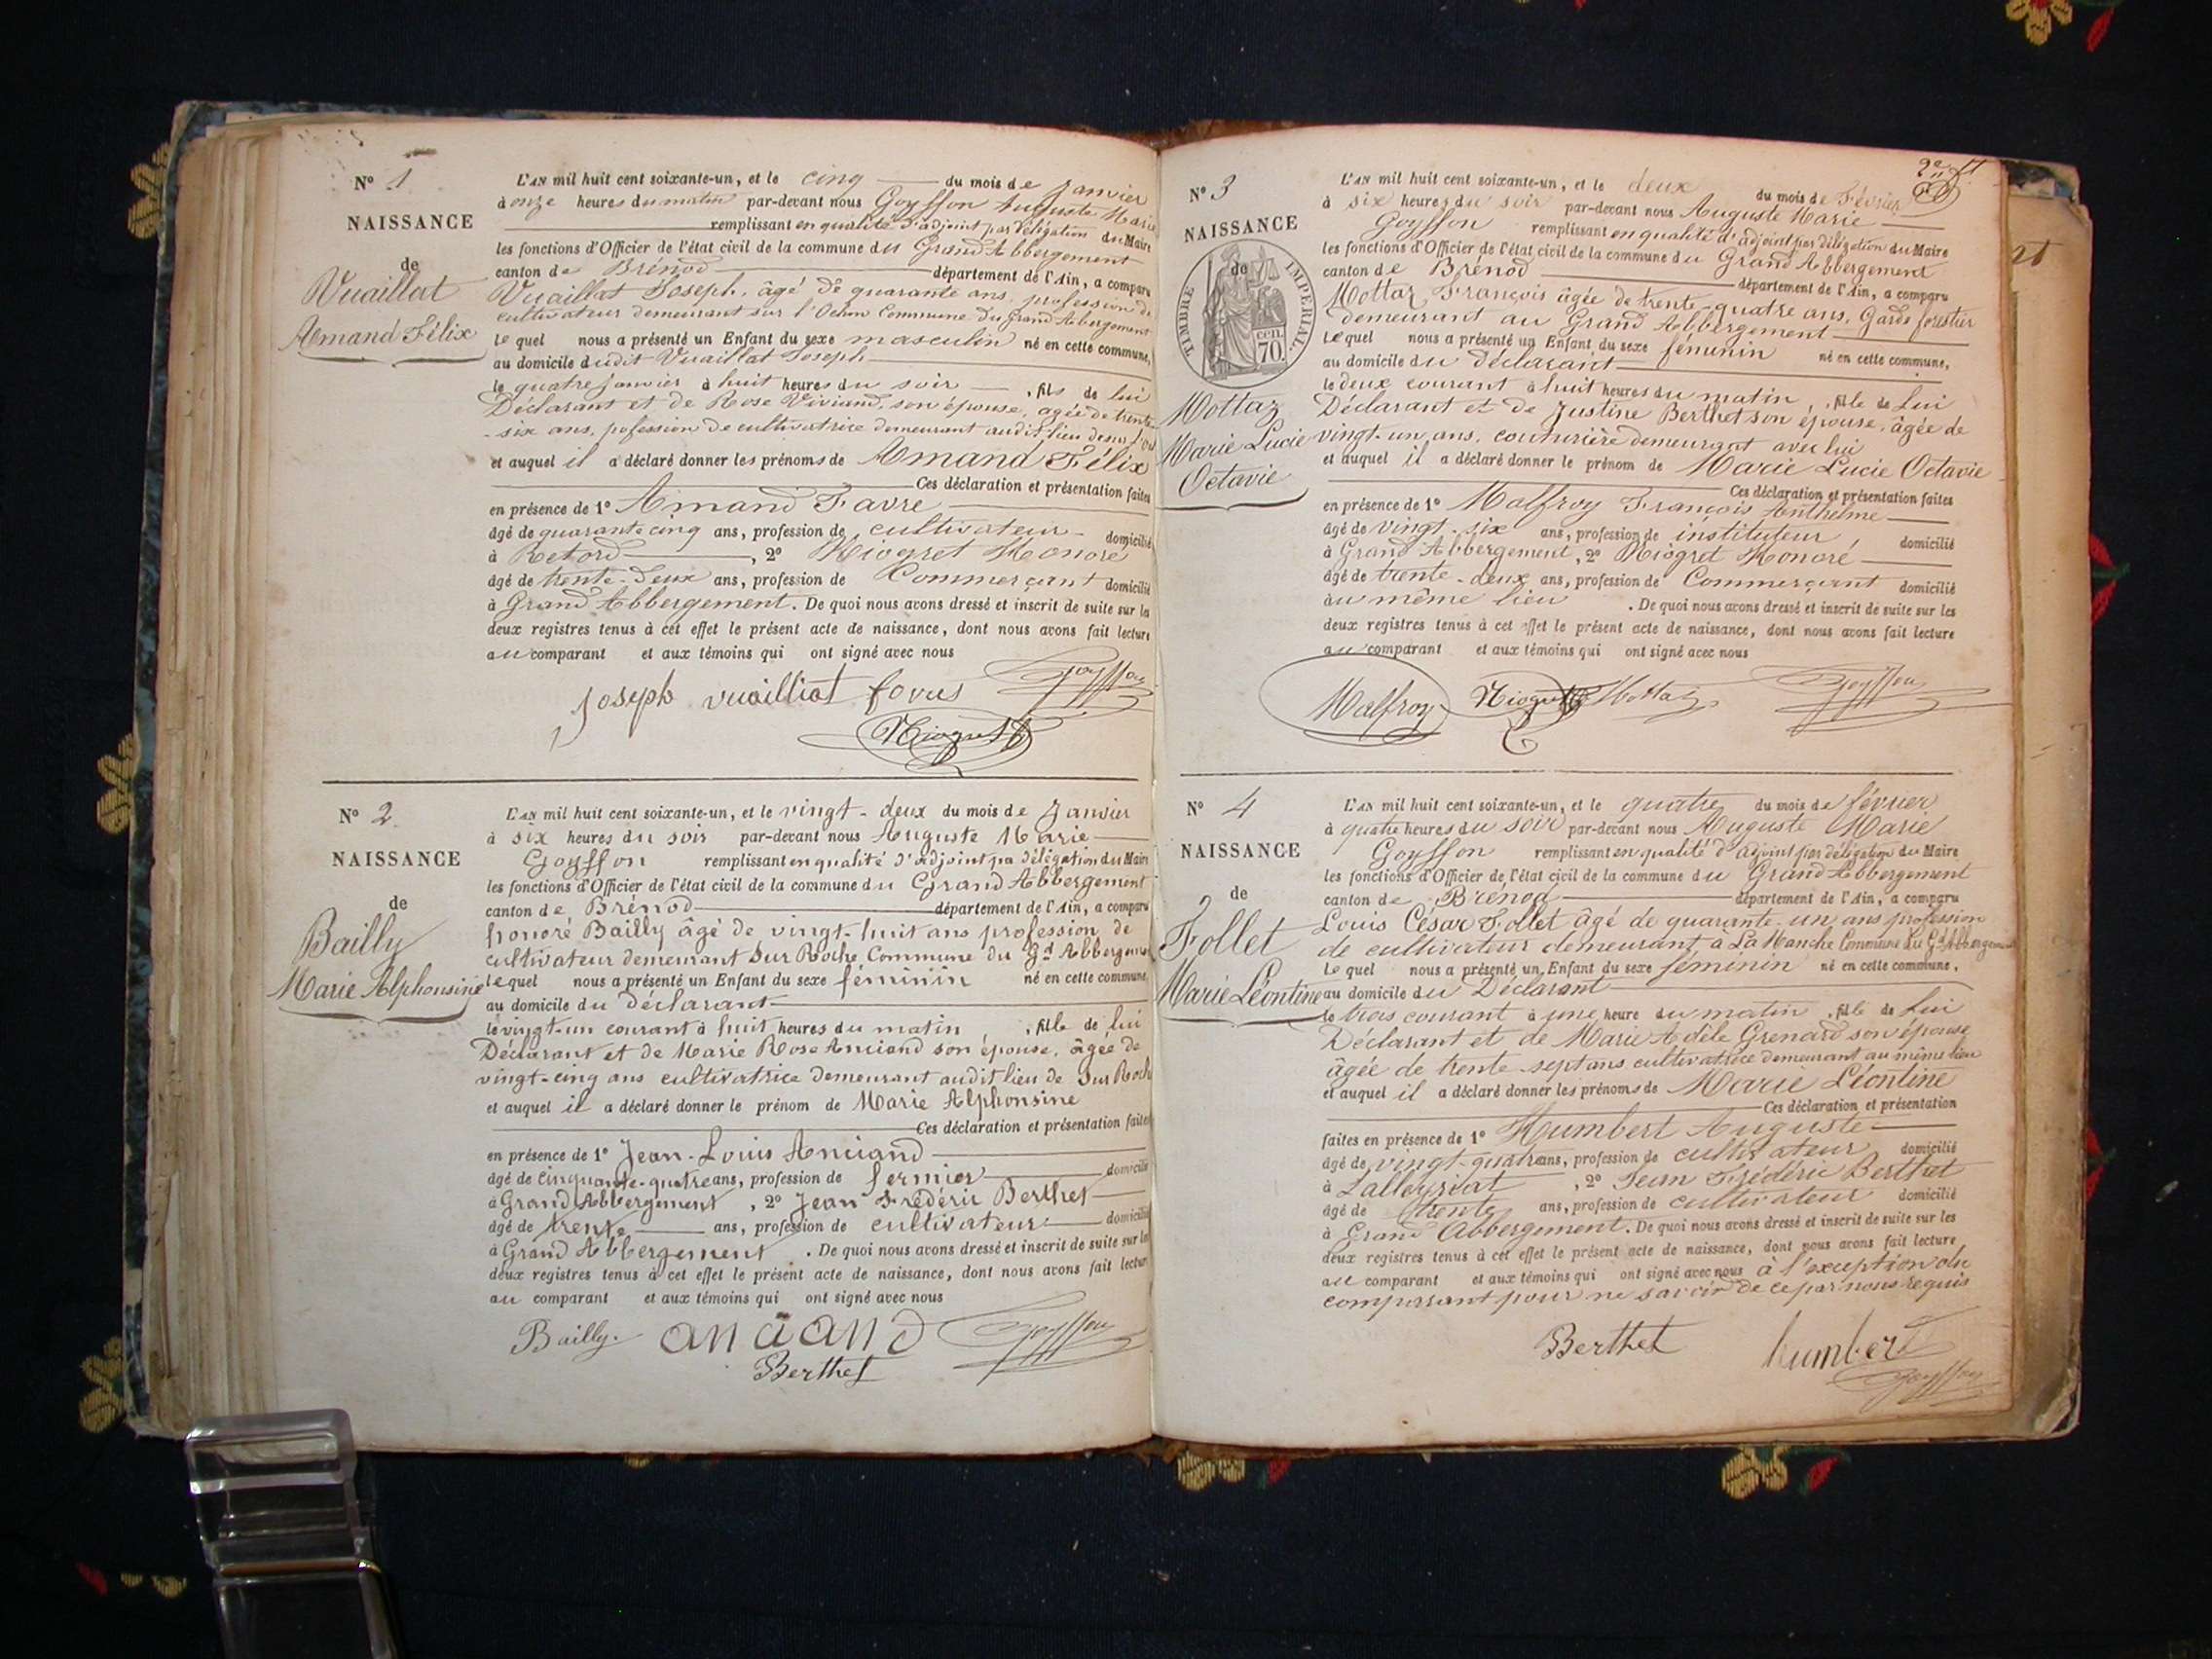 N° 1
NAISSANCE
de
Vuaillat
Amand Félix
L'AN mil huit cent soixante-un, et le cinq du mois de Janvier
à onze heures du matin par-devant nous Goyffon Auguste Marie
remplissant en qualité d'adjoint par délégation du Maire
les fonctions d'Officier de l'état civil de la commune du Grand Abbergement
canton de Brénod département de l'Ain, a comparu
Vuaillat Joseph, âgé de quarante ans, profession de
cultivateur demeurant sur l' Commune du Grand Abergement
Lequel nous a présenté un Enfant du sexe masculin né en cette commune,
au domicile dudit Vuaillat Joseph
le quatre Janvier à huit heures du soir, fils de lui
Déclarant et de Rose Viviand, son épouse, agée de trente
-six ans, pofession de cultivatrice demeurant audit lieu
et auquel il a déclaré donner les prénoms de Amand Félix
Ces déclaration et présentation faites
en présence de 1° Amand Favre
âgé de quarante cinq ans, profession de cultivateur domicilié
à Retord, 2° Miogret Honoré
âgé de trente-deux ans, profession de Commerçant domicilié
à Grand Abbergement. De quoi nous avons dressé et inscrit de suite sur les
deux registres tenus à cet effet le présent acte de naissance, dont nous avons fait lecture
au comparant et aux témoins qui ont signé avec nous
Joseph vuailliat favre Goyffon
Miogret
N° 2
NAISSANCE
de
Bailly
Marie Alphonsine
L'AN mil huit cent soixante-un, et le vingt-deux du mois de Janvier
à six heures du soir par-devant nous Auguste Marie
Goyffon remplissant en qualité d'adjoint pa délégation du Maire
les fonctions d'Officier de l'état civil de la commune du Grand Abbergement
canton de Brénod département de l'Ain, a comparu
honoré Bailly âgé de vingt-huit ans profession de
cultivateur demeurant Sur Roche Commune du Gd Abbergement
Lequel nous a présenté un Enfant du sexe féminin né en cette commune
au domicile du déclarant
le vingt-un courant à huit heures du matin, fille de lui
Déclarant et de Marie Rose Anciand son épouse, âgée de
vingt-cinq ans cultivatrice demeurant audit lieu de Sur Roche
et auquel il a déclaré donner le prénom de Marie Alphonsine
Ces déclaration et présentation faites
en présence de 1° Jean-Louis Anciand
âgé de cinquante-quatre ans, profession de fermier domicilié
à Grand Abbergement, 2° Jean Frédéric Berthet
âgé de trente ans, profession de cultivateur domicilié
à Grand Abbergement. De quoi nous avons dressé et inscrit de suite sur les
deux registres tenus à cet effet le présent acte de naissance, dont nous avons fait lecture
au comparant et aux témoins qui ont signé avec nous
Bailly. anciand Goyffon
Berthet
N° 3
NAISSANCE
de
TIMBRE IMPERIAL.
cen
70.
Mottaz
Marie Lucie
Octavie
L'AN mil huit cent soixante-un, et le deux du mois de Février
à six heures du soir par-devant nous Auguste Marie
Goyffon remplissant en qualité d'adjoint par délégation du Maire
les fonctions d'Officier de l'état civil de la commune du Grand Abbergement
canton de Brénod département de l'Ain, a comparu
Mottaz François âgée de trente-quatre ans, Garde forestier
demeurant au Grand Abbergement
Lequel nous a présenté un Enfant du sexe féminin né en cette commune,
au domicile du Déclarant
le deux courant à huit heures du matin, fille de Lui
Déclarant et de Justine Berthet son épouse, âgée de
vingt-un ans, couturière demeurant avec lui
et auquel il a déclaré donner le prénom de Marie Lucie Octavie
Ces déclaration et présentation faites
en présence de 1° Malfroy François Anthelme
âgé de vingt-six ans, profession de instituteur domicilié
à Grand Abbergement, 2° Miogret Honoré
âgé de trente-deux ans, profession de Commerçant domicilié
au même lieu. De quoi nous avons dressé et inscrit de suite sur les
deux registres tenus à cet effet le présent acte de naissance, dont nous avons fait lecture
au comparant et aux témoins qui ont signé avec nous
Malfroy Miogret Mottaz Goyffon
N° 4
NAISSANCE
de
Follet
Marie Léontine
L'AN mil huit cent soixante-un, et le quatre du mois de février
à quatre heures du soir par-devant nous Auguste Marie
Goyffon remplissant en qualité d'adjoint par délégation du Maire
les fonctions d'Officier de l'état civil de la commune du Grand Abbergement
canton de Brénod département de l'Ain, a comparu
Louis César Follet âgé de quarante-un ans profession
de cultivateur demeurant à La Manche Commune du Gd Abbergement
Lequel nous a présenté un Enfant du sexe féminin né en cette commune,
au domicile du Déclarant
le trois courant à une heure du matin, fille de Lui
Déclarant et de Marie Adèle Grenard son épouse
âgée de trente-sept ans cultivatrice demeurant au même lieu
et auquel il a déclaré donner les prénoms de Marie Léontine
Ces déclaration et présentation
faites en présence de 1° Humbert Auguste
âgé de vingt-quatre ans, profession de cultivateur domicilié
à Lalleyriat, 2° Jean Frédéric Berthet
âgé de trente ans, profession de cultivateur domicilié
à Grand Abbergement. De quoi nous avons dressé et inscrit de suite sur les
deux registres tenus à cet effet le présent acte de naissance, dont nous avons fait lecture
au comparant et aux témoins qui ont signé avec nous à l'exception du
comparant pour ne savoir de ce par nous requis
Berthet humbert
Goyffon